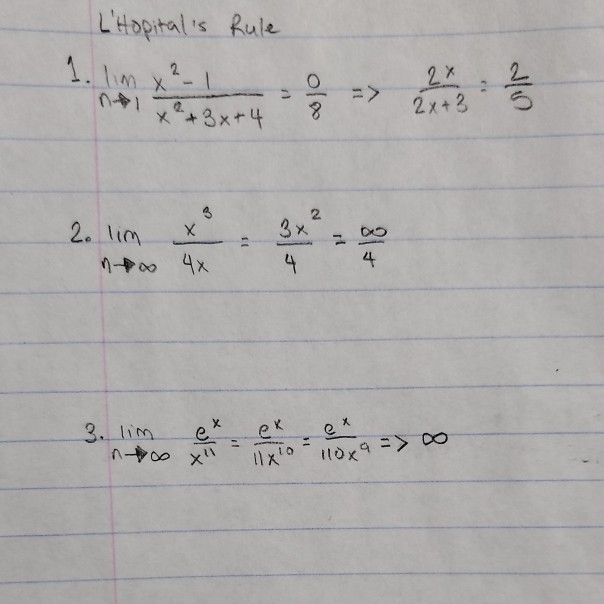 L'Hopital's Rule
1. lim n→1 x² - 1 / x² + 3x + 4 = 0/8 => 2x / 2x + 3 = 2/5
2. lim n→∞ x³ / 4x = 3x² / 4 = ∞/4
3. lim n→∞ eˣ / x¹¹ = eˣ / 11x¹⁰ = eˣ / 110x⁹ => ∞